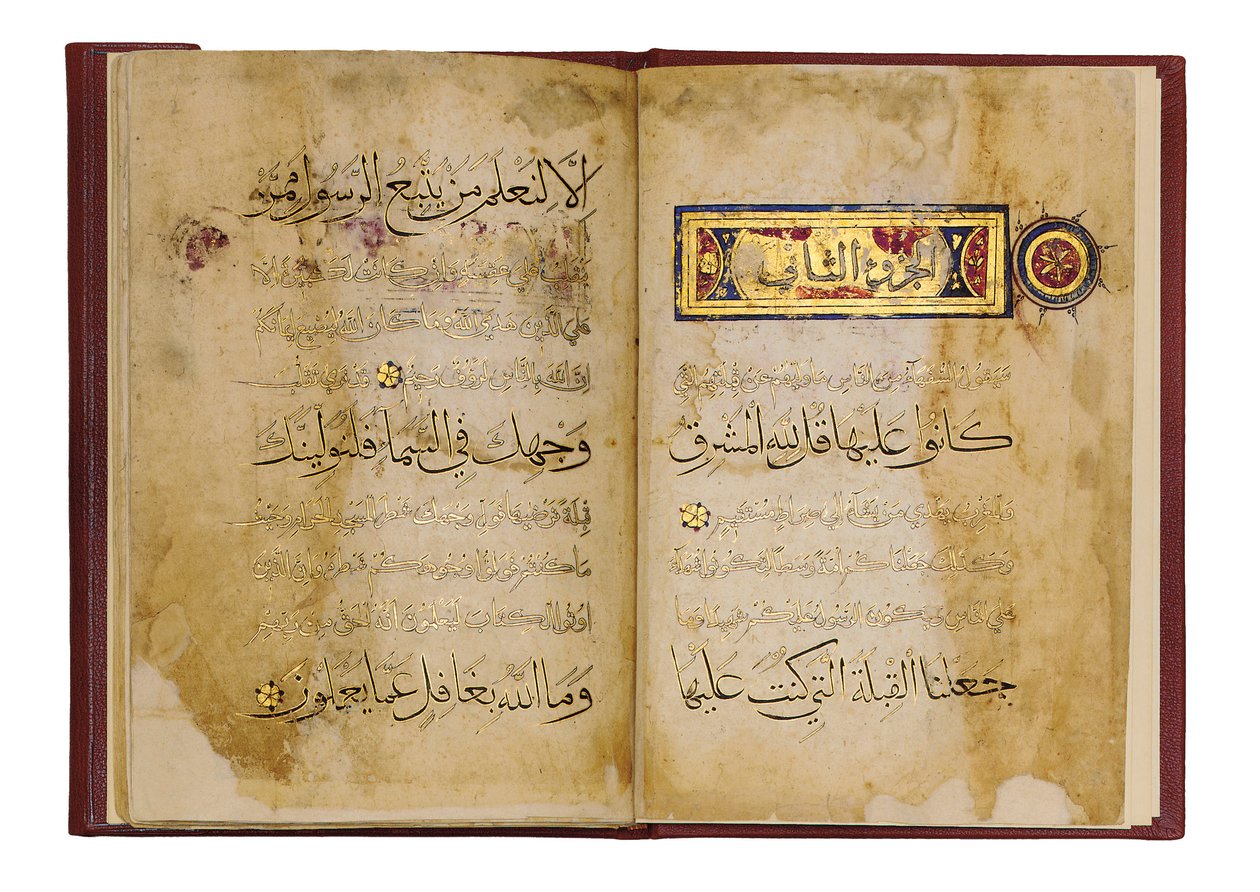 الجزوء الثاني
سَيَقُولُ السُّفَهَآءُ مِنَ النَّاسِ مَا وَلّٰيهُمْ عَنْ قِبْلَتِهِمُ الَّتِي
كَانُوا عَلَيْهَا قُلْ لِلّٰهِ الْمَشْرِقُ
وَالْمَغْرِبُ يَهْدِي مَنْ يَشَآءُ اِلٰي صِرَاطٍ مُسْتَقِيمٍ
وَكَذٰلِكَ جَعَلْنَاكُمْ اُمَّةً وَسَطًا لِتَكُونُوا شُهَدَآءَ
عَلَي النَّاسِ وَيَكُونَ الرَّسُولُ عَلَيْكُمْ شَهِيدًا وَمَا
جَعَلْنَا الْقِبْلَةَ الَّتِي كُنْتَ عَلَيْهَا
اِلَّا لِنَعْلَمَ مَنْ يَتَّبِعُ الرَّسُولَ مِمَّنْ
يَنْقَلِبُ عَلٰي عَقِبَيْهِ وَاِنْ كَانَتْ لَكَبِيرَةً اِلَّا
عَلَي الَّذِينَ هَدَي اللّٰهُ وَمَا كَانَ اللّٰهُ لِيُضِيعَ اِيمَانَكُمْ
اِنَّ اللّٰهَ بِالنَّاسِ لَرَؤُوفٌ رَحِيمٌ قَدْ نَرٰي تَقَلُّبَ
وَجْهِكَ فِي السَّمَآءِ فَلَنُوَلِّيَنَّكَ
قِبْلَةً تَرْضٰيهَا فَوَلِّ وَجْهَكَ شَطْرَ الْمَسْجِدِ الْحَرَامِ وَحَيْثُ
مَا كُنْتُمْ فَوَلُّوا وُجُوهَكُمْ شَطْرَهُ وَاِنَّ الَّذِينَ
اُوتُوا الْكِتَابَ لَيَعْلَمُونَ اَنَّهُ الْحَقُّ مِنْ رَبِّهِمْ
وَمَا اللّٰهُ بِغَافِلٍ عَمَّا يَعْمَلُونَ